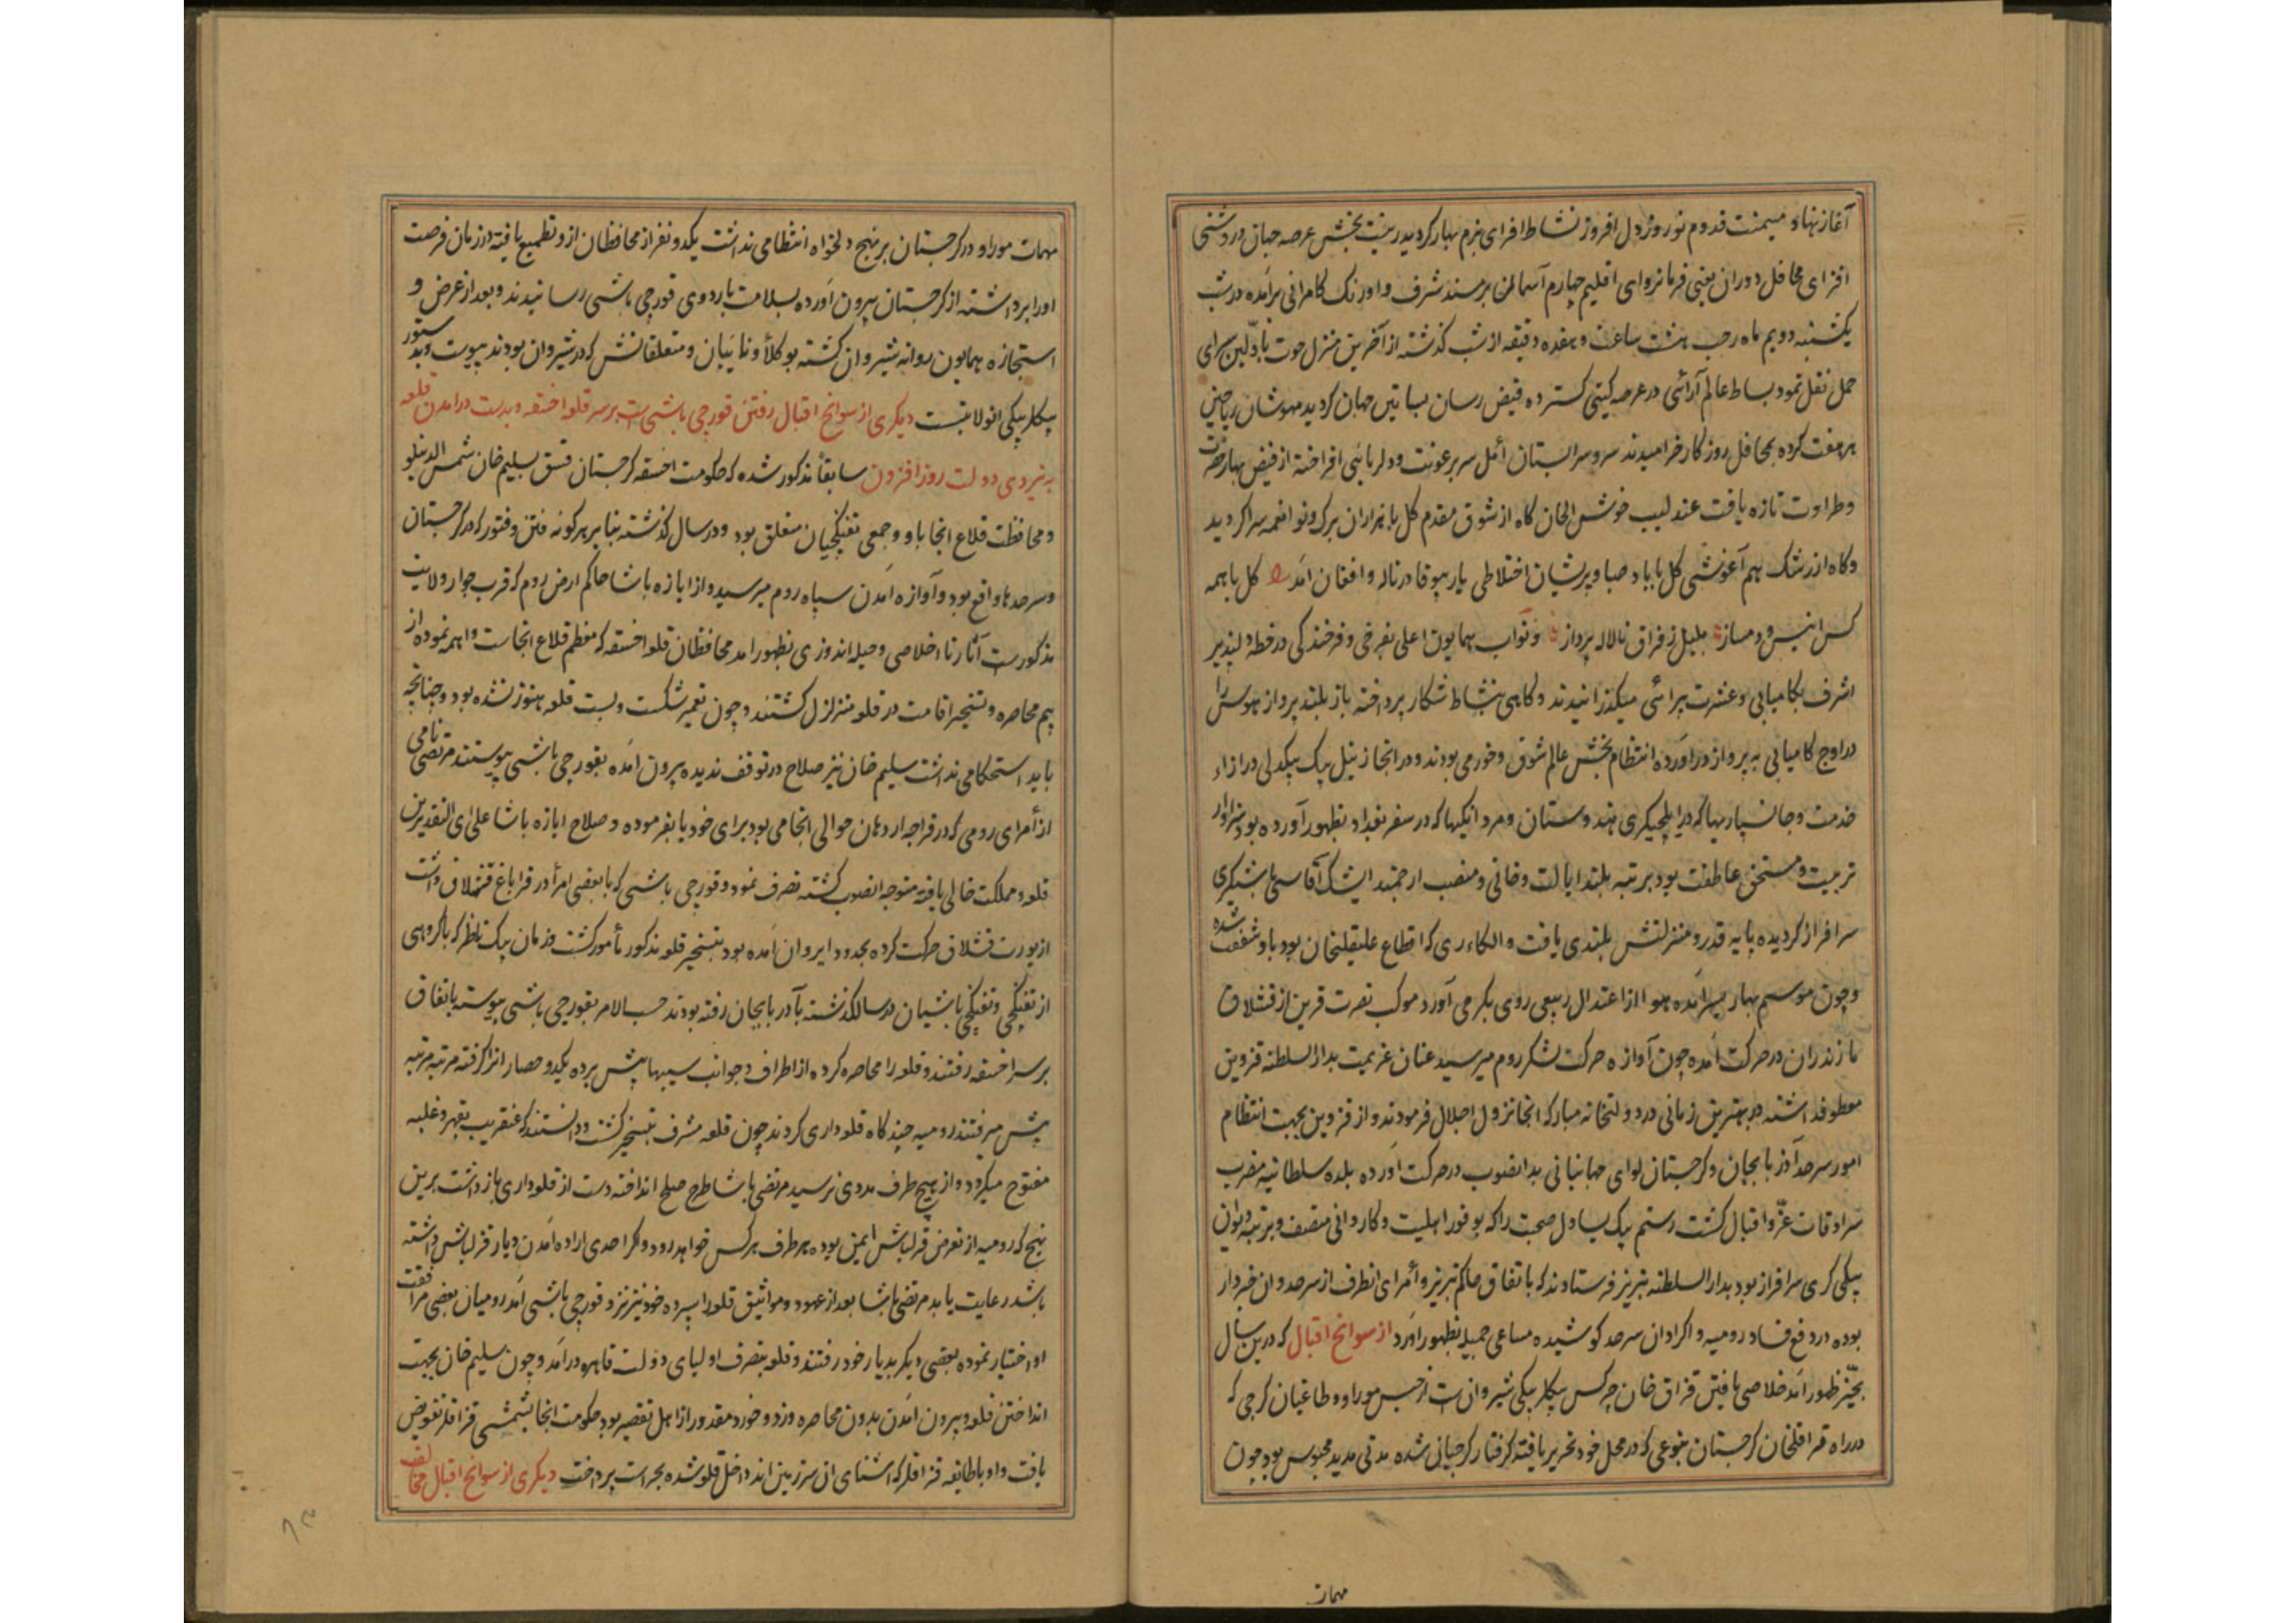 آغاز نهاد و میمنت قدوم نوروز دل افروز نشاط افزای بزم بهار کردید زینت بخش عرصه جهان و روشنی
افزای محافل دوران یعنی فرمانروای اقلیم چهارم آسمان بر مسند شرف و اورنک کامرانی برآمده در شب
یکشنبه دویم ماه رجب هشت ساعت و هفده دقیقه از شب کذشته از آخرین منزل حوت باولین سرای
حمل نقل نمود بساط عالم آرائی در عرصه کیتی کسترده فیض رسان بساتین جهان کردید مهوشان ریاحین
هر هفت کرده بمحافل روزکار خرامیدند سرو سرابستان امل سر برعونت و دلربائی افراخته از فیض بهار خضرت
و طراوت تازه یافت عندلیب خوش الحان کاه از شوق مقدم کل با هزاران برک و نوا نغمه سرا کردید
و کاه از رشک هم آغوشی کل با باد صبا و پریشان اختلاطی یار بیوفا در ناله و افغان آمد کل با همه
کس انیس و دمساز بلبل ز فراق ناله پرداز و نواب همایون اعلی بفرخی و فرخندکی در خطه دلپذیر
اشرف بکامیابی و عشرت پیرائی میکذرانیدند و کاهی بنشاط شکار پرداخته باز بلند پرواز هوس را
در اوج کامیابی به پرواز درآورده انتظام بخش عالم شوق و خورمی بودند و در انجا زینل بیک بیکدلی در ازاء
خدمت و جانسپاریها که در ایلچیکری هندوستان و مردانکیها که در سفر بغداد بظهور آورده بود سزاوار
تربیت و مستحق عاطفت بود برتبه بلند ایالت و خانی و منصب ارجمند ایشک آقاسی باشیکری
سرافراز کردیده پایه قدر و منزلتش بلندی یافت و الکاء ری که اقطاع علیقلیخان بود باو شفقت شده
و چون موسم بهار بسر آمده هوا از اعتدال ربیعی روی بکرمی آورد موکب نصرت قرین از قشلاق
مازندران در حرکت آمده چون آوازه حرکت لشکر روم میرسید عنان عزیمت بدار السلطنه قزوین
معطوف داشته در بهترین زمانی در دولتخانه مبارکه انجا نزول اجلال فرمودند و از قزوین بجهت انتظام
امور سرحد آذربایجان و کرجستان لوای جهانبانی بدانصوب در حرکت آورده بلده سلطانیه مضرب
سرادقات عز و اقبال کشت رستم بیک یساول صحبت را که بوفور اهلیت و کاردانی متصف و برتبه دیوان
بیکی کری سرافراز بود بدار السلطنه تبریز فرستادند که باتفاق حاکم تبریز و امرای انطرف از سرحد و ان خبردار
بوده در دفع فساد رومیه و اکراد ان سرحد کوشیده مساعی جمیله بظهور آورد از سوانح اقبال که درین سال
بحیز ظهور آمد خلاصی یافتن قزاق خان چرکس بیکلربیکی شیروان است از حبس موراو و طاغیان کرجی که
در راه قراقلخان کرجستان بنوعی که در محل خود تحریر یافته کرفتار کرجیانی شده مدتی مدید محبوس بود چون
مهمات
مهمات موراو در کرجستان بر نهج دلخواه انتظامی نداشت یکدو نفر از محافظان ازو تطمیع یافته در زمان فرصت
اورا برداشته از کرجستان بیرون آورده بسلامت باردوی قورچی باشی رسانیدند و بعد از عرض و
استجازه همایون روانه شیروان کشته بوکلأ و نایبان و متعلقانش که در شیروان بودند پیوست و بدستور
بیکلربیکی انولایتست دیکری از سوانح اقبال رفتن قورچی باشی است بر سر قلعه اخسقه و بدست درامدن قلعه
به نیروی دولت روزافزون سابقاً مذکور شده که حکومت اخسقه کرجستان مسق بسلیم خان شمس الدینلو
و محافظت قلاع انجا باو و جمعی تفنکچیان متعلق بود و در سال کذشته بنا بر هرکونه فتن و فتور که در کرجستان
و سرحدها واقع بود و آوازه آمدن سپاه روم میرسید و از ابازه پاشا حاکم ارض روم که قرب جوار ولایت
مذکورست آثار نا اخلاصی و حیله اندوزی بظهور امد محافظان قلعه اخسقه که معظم قلاع انجاست واهمه نموده از
بیم محاصره و تسخیر اقامت در قلعه متزلزل کشتند و چون تعمیر شکست و بست قلعه هنوز نشده بود و چنانچه
باید استحکامی نداشت سلیم خان نیز صلاح در توقف ندیده بیرون آمده بقورچی باشی پیوستند مرتضی نامی
از امرای رومی که در قراجه اردهان حوالی انجا می بود برای خود یا بفرموده و صلاح ابازه پاشا علی ای التقدیرین
قلعه و مملکت خالی یافته متوجه انصوب کشته تصرف نمود و قورچی باشی که با بعضی امرأ در قراباغ قشلاق داشت
از یورت قشلاق حرکت کرده بحدود ایروان آمده بود بتسخیر قلعه مذکور مأمور کشت و زمان بیک ناظر که باکروهی
از تفنکچی و تفنکچی باشیان در سال کذشته بآذربایجان رفته بودند حسب الامر بقورچی باشی پیوسته باتفاق
بر سر اخسقه رفتند و قلعه را محاصره کرده از اطراف و جوانب سیبها پیش برده یکدو حصار انرا کرفته مرتبه مرتبه
پیش میرفتند رومیه چند کاه قلعه داری کردند چون قلعه مشرف بتسخیر کشت و دانستند که عنقریب بقهر و غلبه
مفتوح میکردد و از هیچ طرف مددی نرسید مرتضی پاشا طرح صلح انداخته دست از قلعه داری باز داشت برین
نهج که رومیه از تعرض قزلباش ایمن بوده بهر طرف هر کس خواهد رود و اکر احدی اراده آمدن دیار قزلباش داشته
باشد رعایت یابد مرتضی پاشا بعد از عهود و مواثیق قلعه را سپرده خود نیز نزد قورچی باشی آمد رومیان بعضی مرافقت
او اختیار نموده بعضی دیکر بدیار خود رفتند و قلعه بتصرف اولیای دولت قاهره درآمد و چون سلیم خان بجهت
انداختن قلعه و بیرون آمدن بدون محاصره و زد و خورد مقدور از اهل تقصیر بود حکومت انجا بشمشی قزاقلر تفویض
یافت و او با طایفه قزاقلر که اشنای ان سرزمین اند داخل قلعه شده بحراست پرداخت دیکری از سوانح اقبال مخالفت